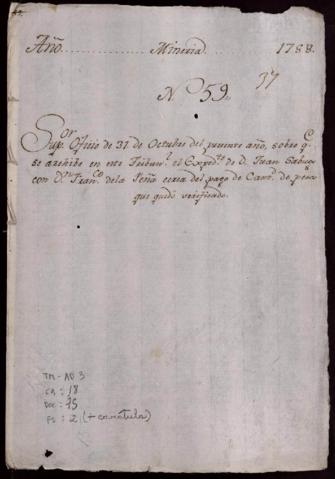 Año ........ Mineria ........ 1788.
Nº 59.
37
Supᵒʳ Oficio de 31 de Octubre del presente año, sobre q̄
se archibe en este Tribunˡ el Expedᵗᵉ de D. Juan
con Dⁿ Francᶜᵒ dela Peña cerca del pago de Cantᵈ de pesos
que quedó verificado.
TM-AD 3
CA: 18
DOC: 75
FS: 2 (+ caratula)